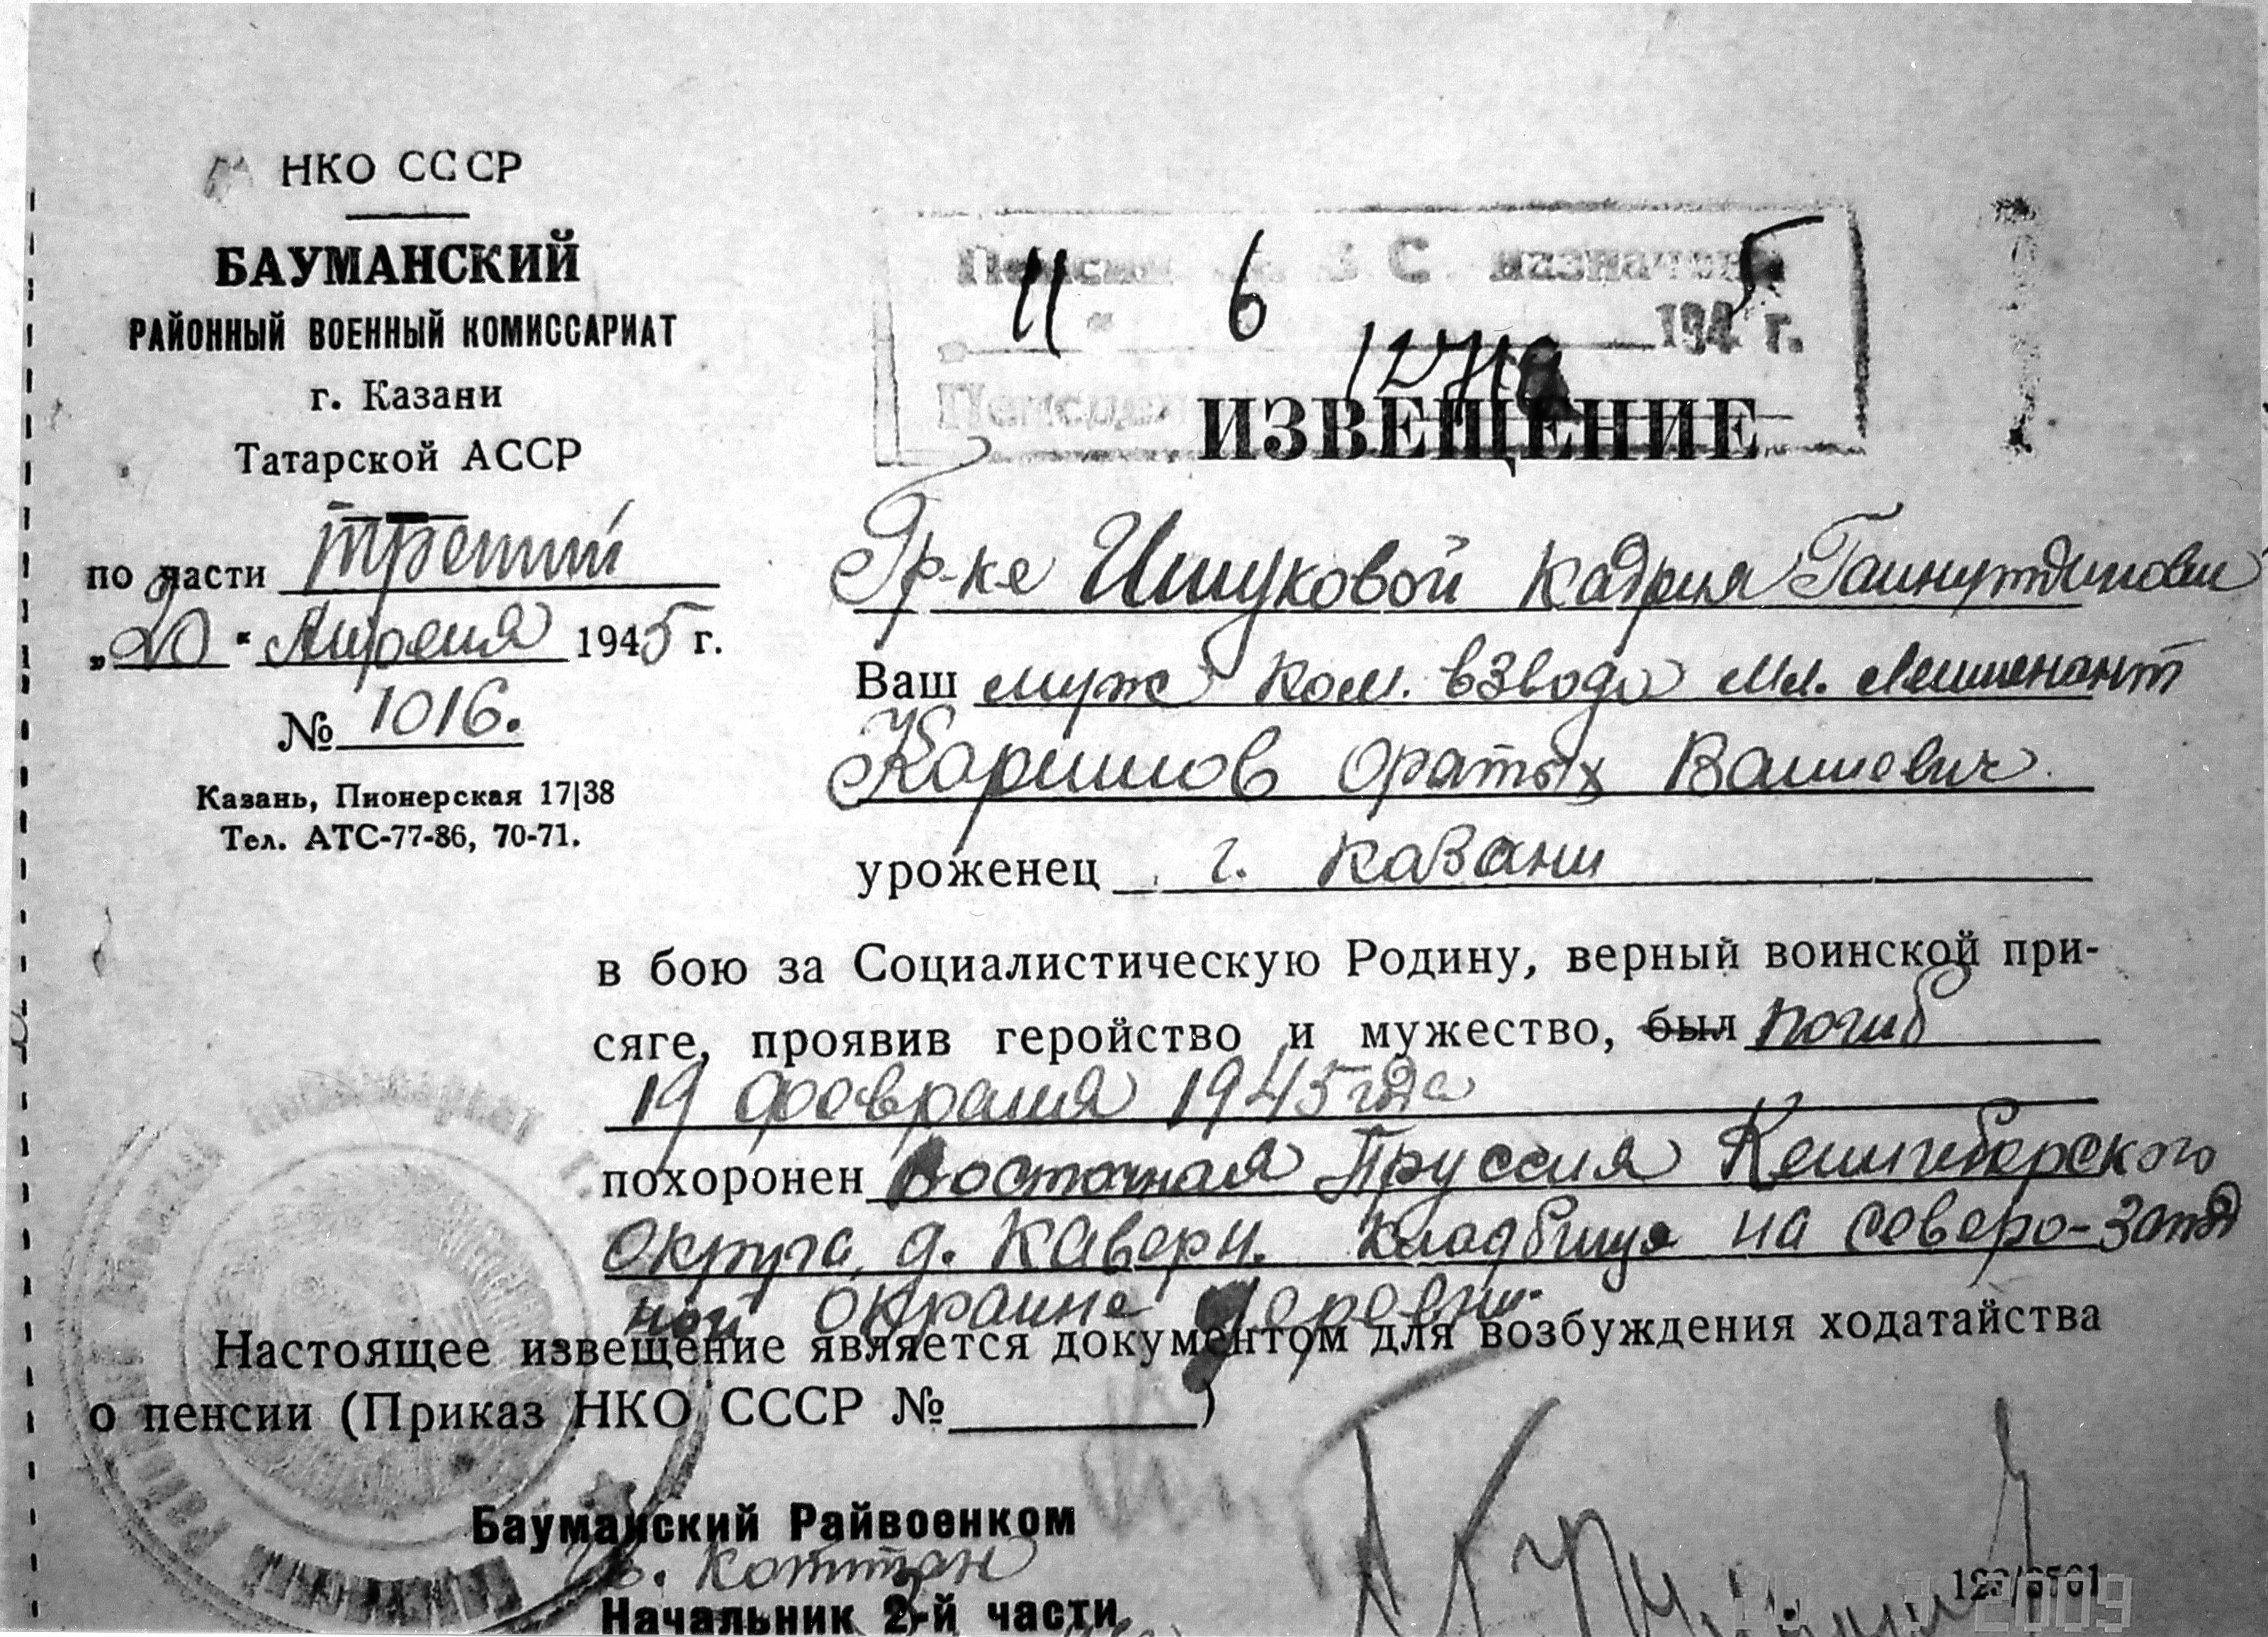 НКО СССР
БАУМАНСКИЙ
РАЙОННЫЙ ВОЕННЫЙ КОМИССАРИАТ
г. Казани
Татарской АССР
по части третий
„20“ Апреля 1945 г.
№ 1016.
Казань, Пионерская 17|38
Тел. АТС-77-86, 70-71.
назначена
11 " 6 1945 г.
ИЗВЕЩЕНИЕ
Гр-ке Ишуковой Кадрия
Ваш муж Ком. взвода Мл. Лейтенант
Каримов
уроженец г. Казани
в бою за Социалистическую Родину, верный воинской при-
сяге, проявив геройство и мужество, был погиб
19 февраля 1945 года
похоронен Восточная Пруссия
Округа, д. Каверн. кладбище на северо-запад
ной окраине деревни.
Настоящее извещение является документом для возбуждения ходатайства
о пенсии (Приказ НКО СССР № )
Бауманский Райвоенком
Начальник 2-й части
2009